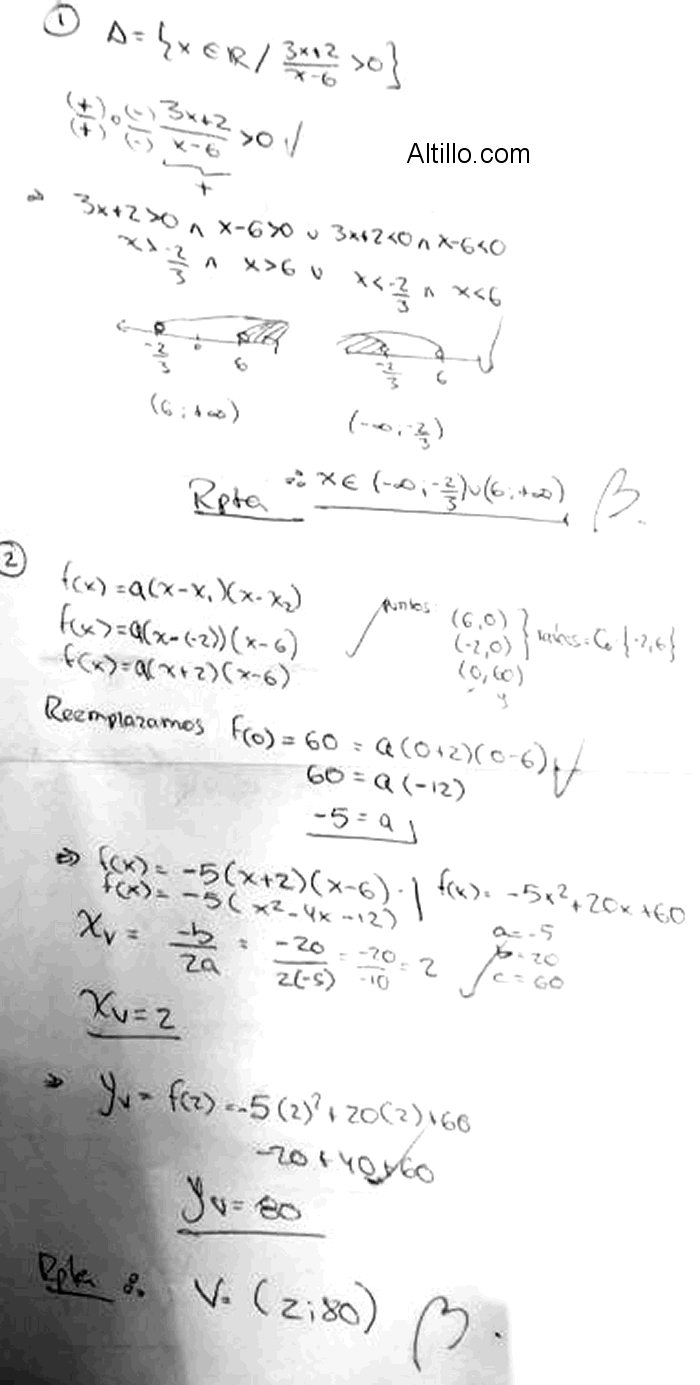 ① A = {x ∈ ℝ / 3x+2/x-6 > 0}
(+)/(+) o (-)/(-) 3x+2/x-6 > 0 ✓
+
Altillo.com
⇒ 3x+2>0 ∧ x-6>0 ∪ 3x+2<0 ∧ x-6<0
x>-2/3 ∧ x>6 ∪ x<-2/3 ∧ x<6
-2/3 0 6 -2/3 6
(6;+∞) (-∞;-2/3)
Rpta ∴ x ∈ (-∞;-2/3)∪(6;+∞) B.
② f(x) = a(x-x₁)(x-x₂)
f(x) = a(x-(-2))(x-6)
f(x) = a(x+2)(x-6)
puntos: (6,0)
(-2,0)
(0,60)
x y
{-2,6}
Reemplazamos f(0) = 60 = a(0+2)(0-6)
60 = a(-12)
-5 = a
⇒ f(x) = -5(x+2)(x-6). | f(x) = -5x²+20x+60
f(x) = -5(x²-4x-12)
a=-5
b=20
c=60
Xv = -b/2a = -20/2(-5) = -20/-10 = 2
Xv=2
⇒ Yv = f(2) = -5(2)²+20(2)+60
-20+40+60
Yv = 80
Rpta ∴ V= (2;80) B.